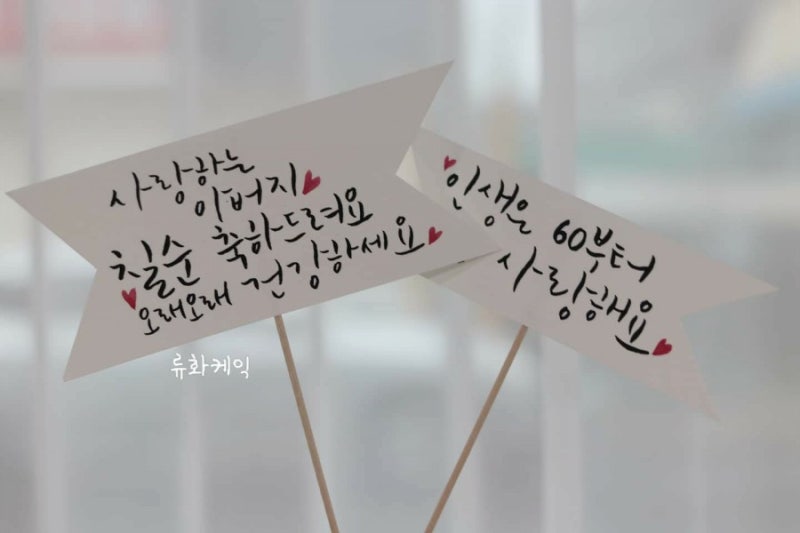 사랑하는
아버지
칠순 축하드려요
오래오래 건강하세요
인생은 60부터
사랑해요
류화케익